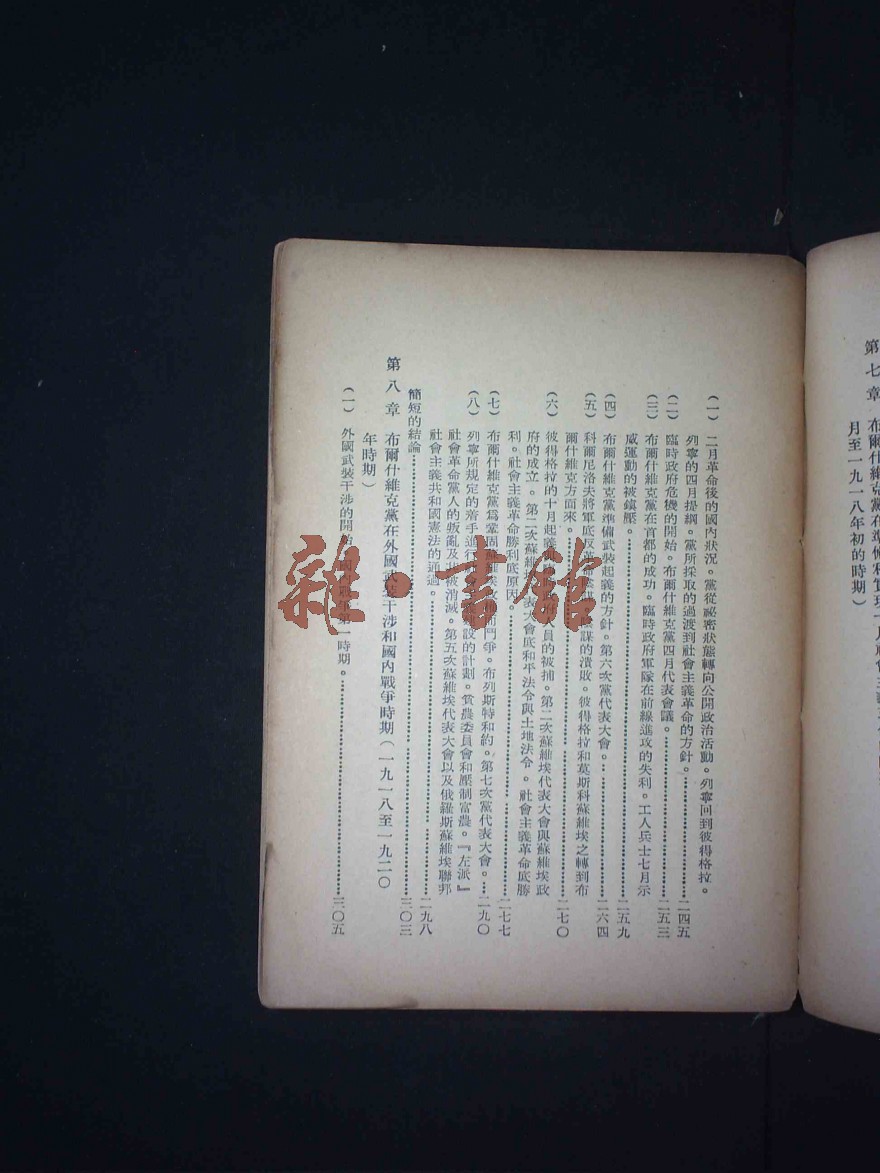 第七章 布爾什維克黨在準備和實現十月社會主義
月至一九一八年初的時期）
（一）二月革命後的國內狀況。黨從祕密狀態轉向公開政治活動。列寧回到彼得格拉。
列寧的四月提綱。黨所採取的過渡到社會主義革命的方針。……二四五
（二）臨時政府危機的開始。布爾什維克黨四月代表會議。……二五三
（三）布爾什維克黨在首都的成功。臨時政府軍隊在前線進攻的失利。工人兵士七月示
威運動的被鎮壓。……二五九
（四）布爾什維克黨準備武裝起義的方針。第六次黨代表大會。……二六四
（五）科爾尼洛夫將軍底反革命陰謀。陰謀的潰敗。彼得格拉和莫斯科蘇維埃之轉到布
爾什維克方面來。……二七〇
（六）彼得格拉的十月起義與臨時政府人員的被捕。第二次蘇維埃代表大會與蘇維埃政
府的成立。第二次蘇維埃代表大會底和平法令與土地法令。社會主義革命底勝
利。社會主義革命勝利底原因。……二七七
（七）布爾什維克黨爲鞏固蘇維埃政權而鬥爭。布列斯特和約。第七次黨代表大會。……二九〇
（八）列寧所規定的着手進行社會主義建設的計劃。貧農委員會和壓制富農。『左派』
社會革命黨人的叛亂及其被消滅。第五次蘇維埃代表大會以及俄羅斯蘇維埃聯邦
社會主義共和國憲法的通過。……二九八
簡短的結論……三〇三
第八章 布爾什維克黨在外國武裝干涉和國內戰爭時期（一九一八至一九二〇
年時期）
（一）外國武裝干涉的開始。國內戰爭第一時期。……三〇五
雜·書館